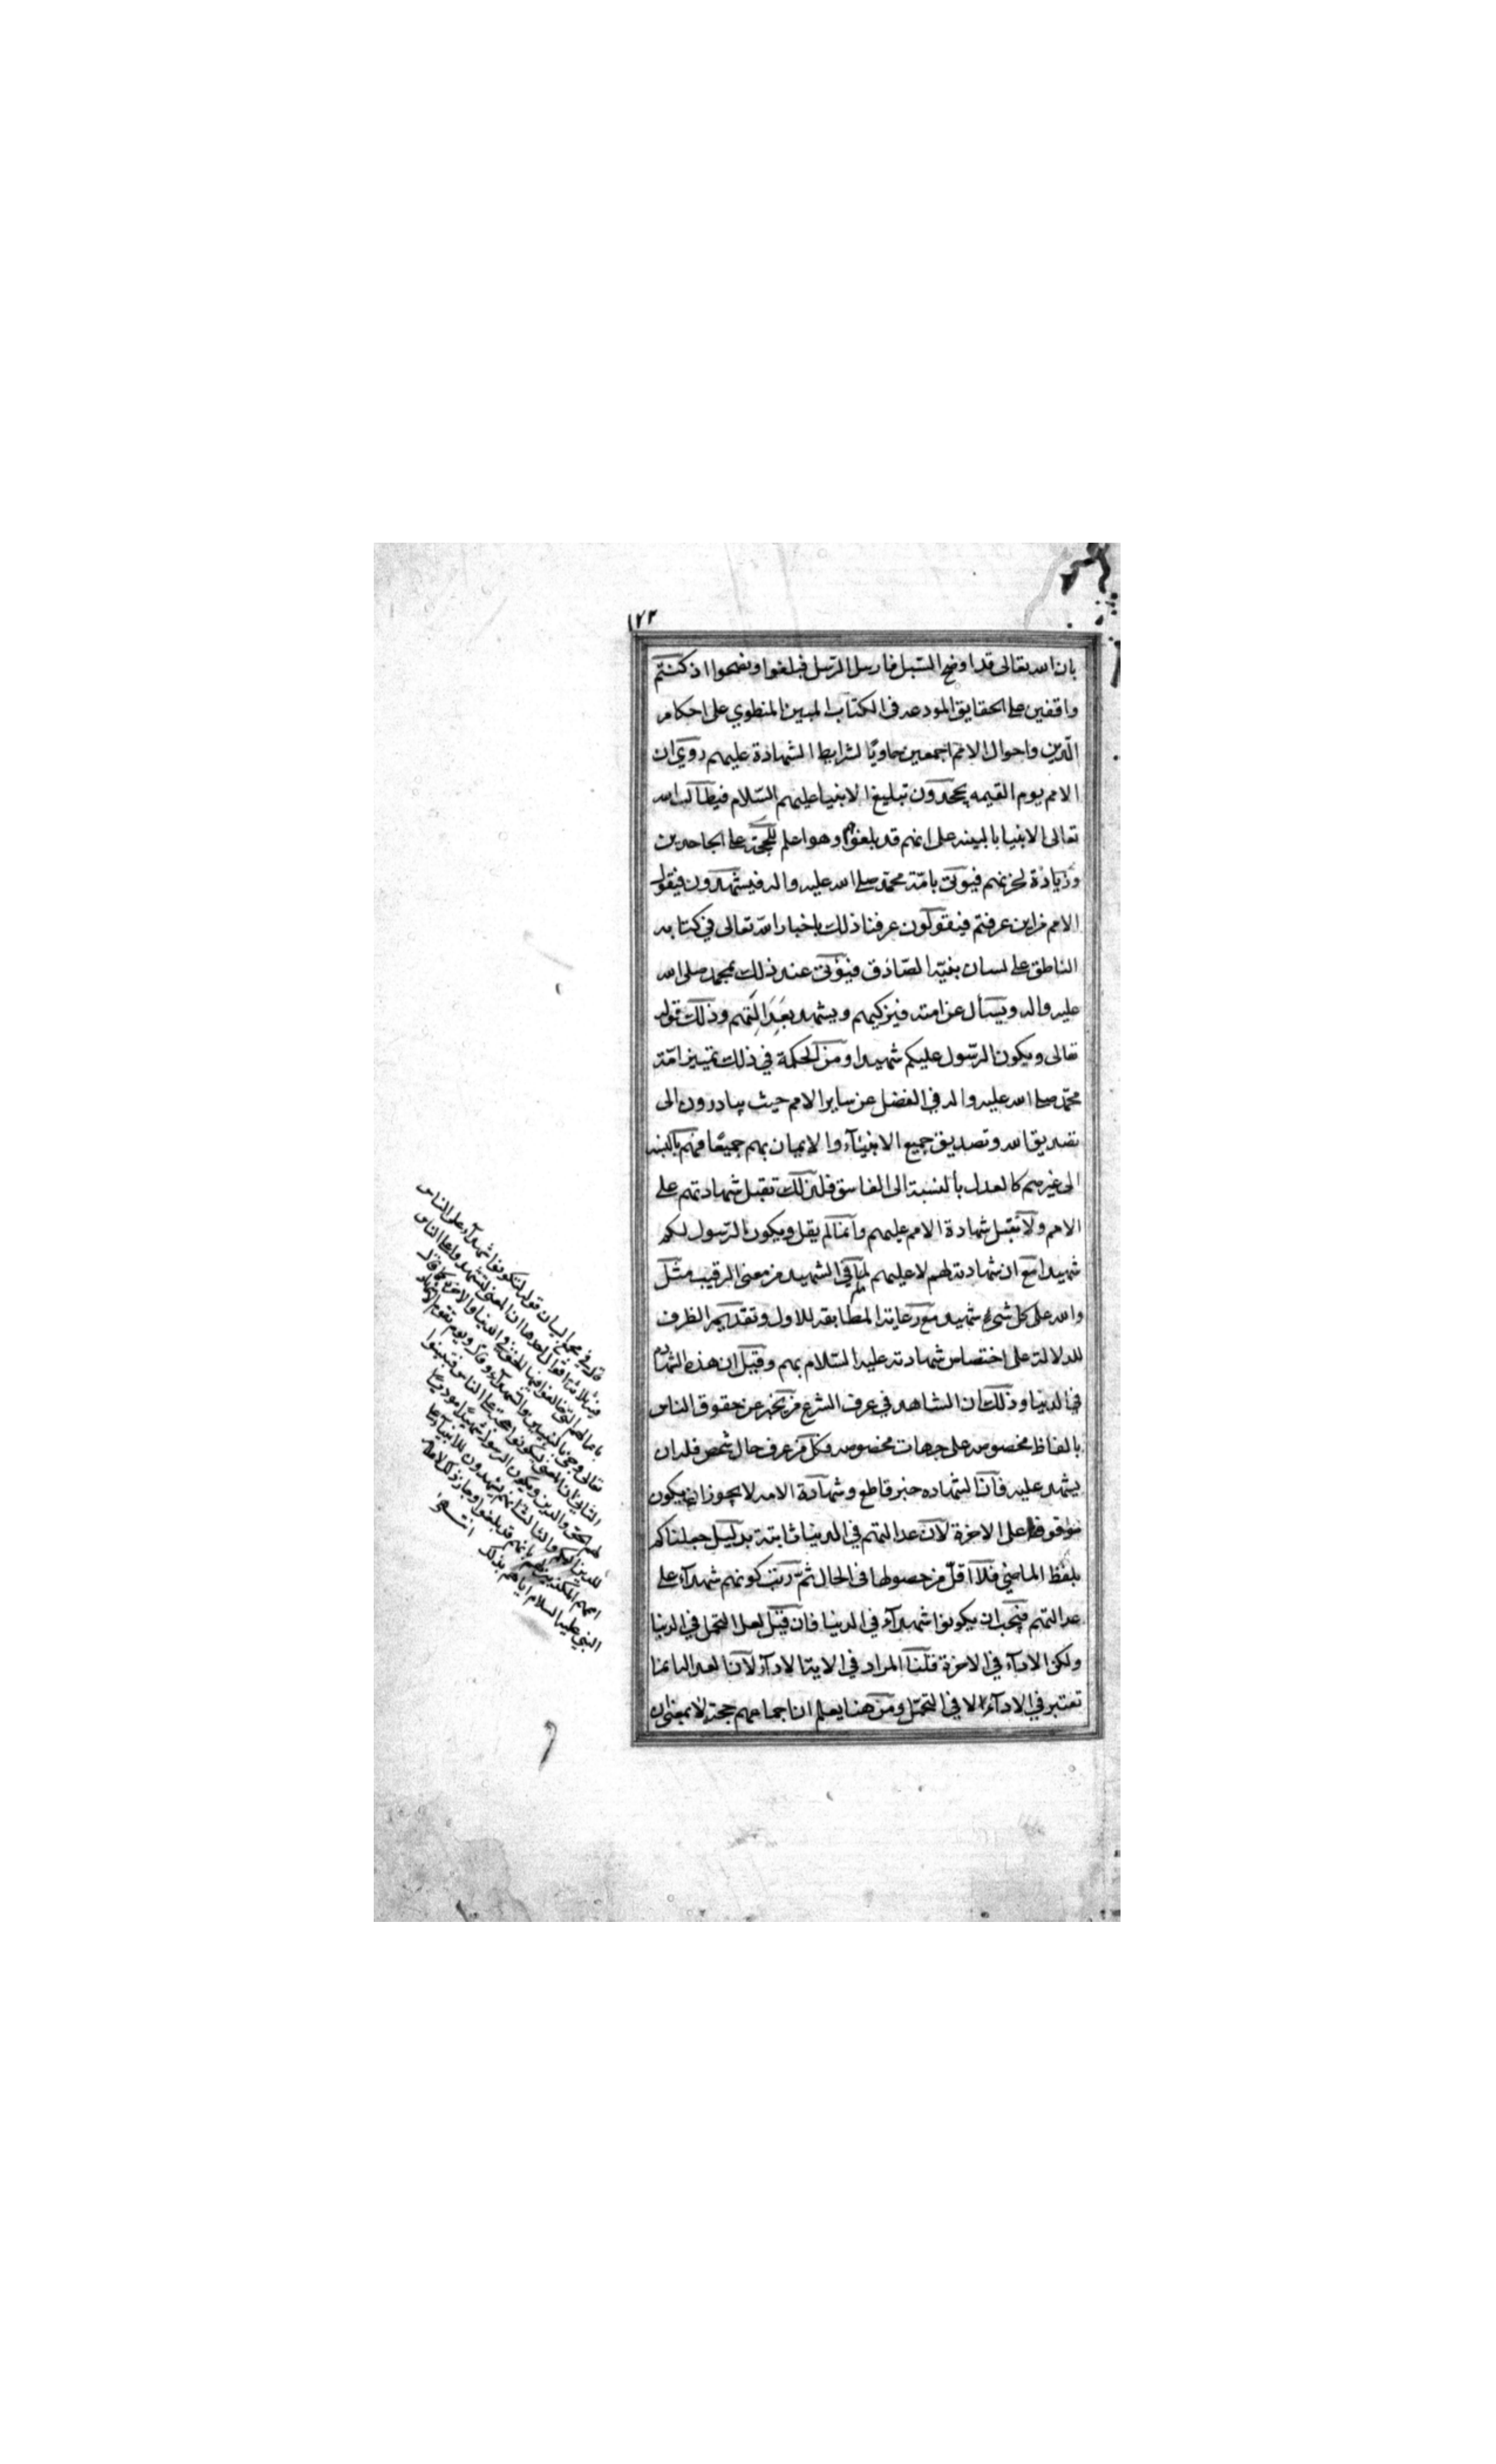 ١٢٣
بان الله تعالى قد اوضح السبل فارسل الرسل فبلغوا ونصحوا اذ كنتم
واقفين على الحقايق المودعه فى الكتاب المبين المنطوي على احكام
الدين واحوال الامم اجمعين حاويًا لشرايط الشهادة عليهم روي ان
الامم يوم القيمه يجحدون تبليغ الانبيا عليهم السلام فيطالب الله
تعالى الانبيا بالبينه على انهم قد بلغوا وهو اعلم للحجة على الجاحدين
وزيادة لخزيهم فيوتى بامّة محمّد صلى الله عليه واله فيشهدون فيقول
الامم من اين عرفتم فيقولون عرفنا ذلك باخبار الله تعالى في كتابه
الناطق على لسان نبيّه الصّادق فيؤتى عند ذلك بمحمد صلى الله
عليه واله ويسأل عن امته فيزكيهم ويشهد بعدالتهم وذلك قوله
تعالى ويكون الرّسول عليكم شهيدا ومن الحكمة في ذلك تمييز امّة
محمّد صلى الله عليه واله في الفضل عن ساير الامم حيث يبادرون الى
تصديق الله وتصديق جميع الانبيآء والايمان بهم جميعًا فهم بالنسبه
الى غيرهم كالعدل بالنسبة الى الفاسق فلذلك تقبل شهادتهم على
الامم ولا تقبل شهادة الامم عليهم وانما لم يقل ويكون الرّسول لكم
شهيدا مع ان شهادته لهم لا عليهم لما في الشهيد من معنى الرقيب مثل
والله على كل شيء شهيد مع رعاية المطابقه للاول وتقديم الظرف
للدلالة على اختصاص شهادته عليه السّلام بهم وقيل ان هذه الشهادة
في الدنيا وذلك ان الشاهد في عرف الشرع من يخبر عن حقوق الناس
بالفاظ مخصوصه على جهات مخصوصه وكل من عرف حال شخص فله ان
يشهد عليه فان الشهاده خبر قاطع وشهادة الامه لا يجوز ان يكون
موقوفة على الاخرة لان عدالتهم في الدنيا ثابتة بدليل جعلناكم
بلفظ الماضي فلا اقلّ من حصولها فى الحال ثمّ رتب كونهم شهدآء على
عدالتهم فيجب ان يكونوا شهدآء في الدنيا فان قيل لعل التحمل في الدنيا
ولكن الادآء في الاخرة قلنا المراد في الاية الادآء لان العدالة انما
تعتبر في الادآء لا في التحمّل ومن هنا يعلم ان اجماعهم حجة لا بمعنى ان
قال في مجمع البيان قوله لتكونوا شهدآء على الناس
فيه ثلاثة اقوال احدها ان المعنى لتشهدوا على الناس
باعمالهم التي خالفوا فيها الحق في الدنيا والاخرة كما قال
تعالى وجئ بالنبيين والشهدآء وقال ويوم يقوم الاشهاد
الثاني ان المعنى لتكونوا حجة على الناس فتبينوا
لهم الحق والدين ويكون الرسول شهيدًا موديًا
للدين اليكم والثالث انهم يشهدون للانبيآء على
اممهم المكذبين لهم بانهم قد بلغوا وجاز ذلك لاعلام
النبي عليه السلام اياهم بذلك انتهى